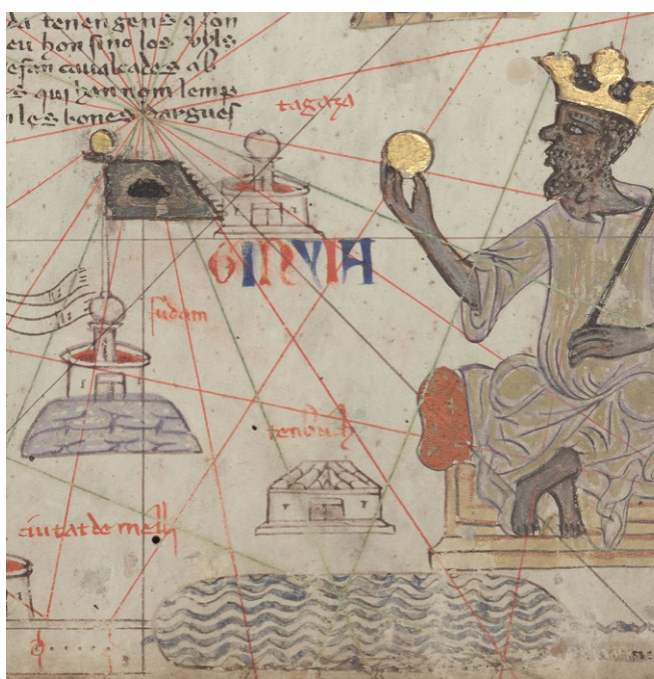 da tenen gens q̄ son
eu hon sino los uyls
e fan caualcades ab
s qui han nom lemp
n les bones dargues
tagaza
GINYIA
sudam
tenbuch
ciutat de melli